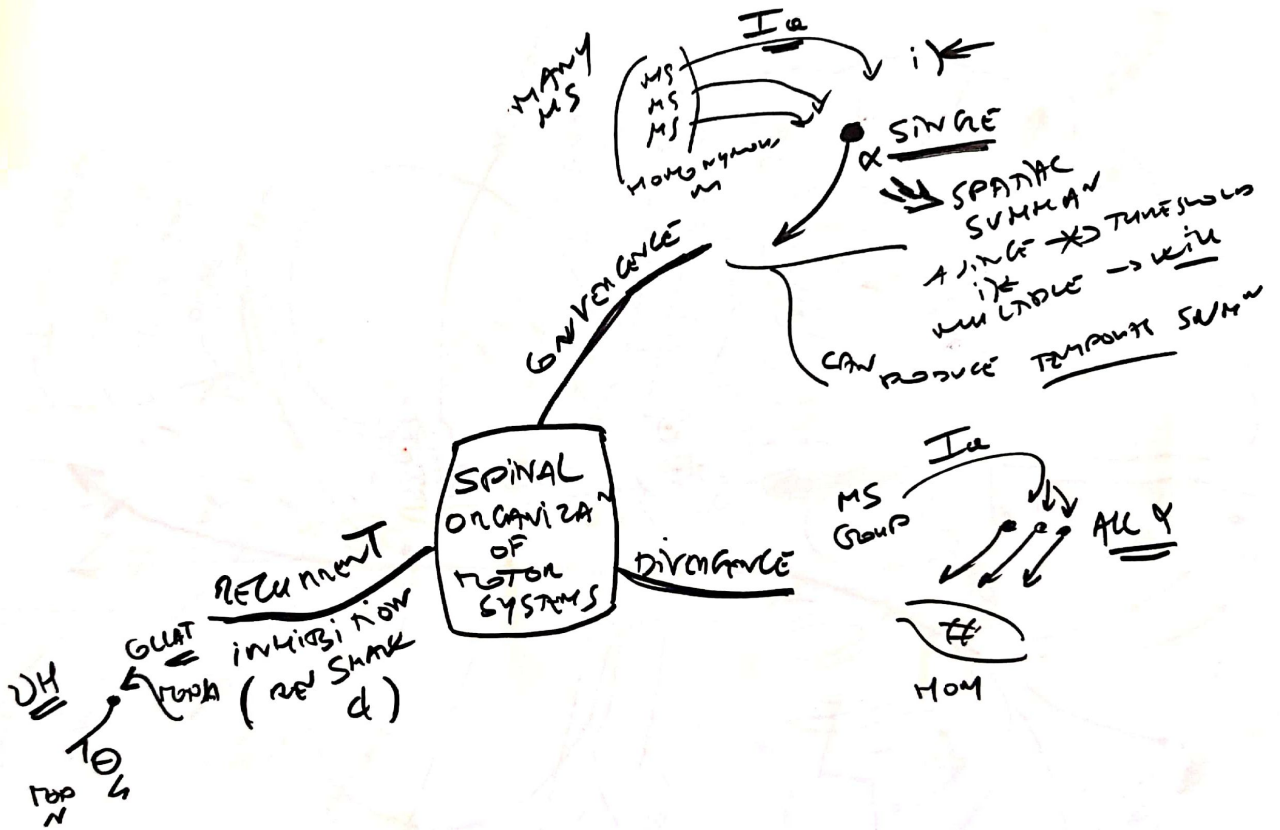 SPINAL
ORGANIZAⁿ
OF
MOTOR
SYSTEMS
CONVERGENCE
MANY
MS
MS
MS
MS
HOMONYMOUS
m
Ia
i)
α SINGLE
SPATIAL
SUMMAN
A SINGE THRESHOLD
i)
MULTIPLE → WILL
CAN PRODUCE TEMPORAL SUMMᴺ
DIVERGENCE
Ia
MS
GROUP
ALL
HOM
RECURRENT
INHIBITION
(RENSHAW
)
COLLAT
VH